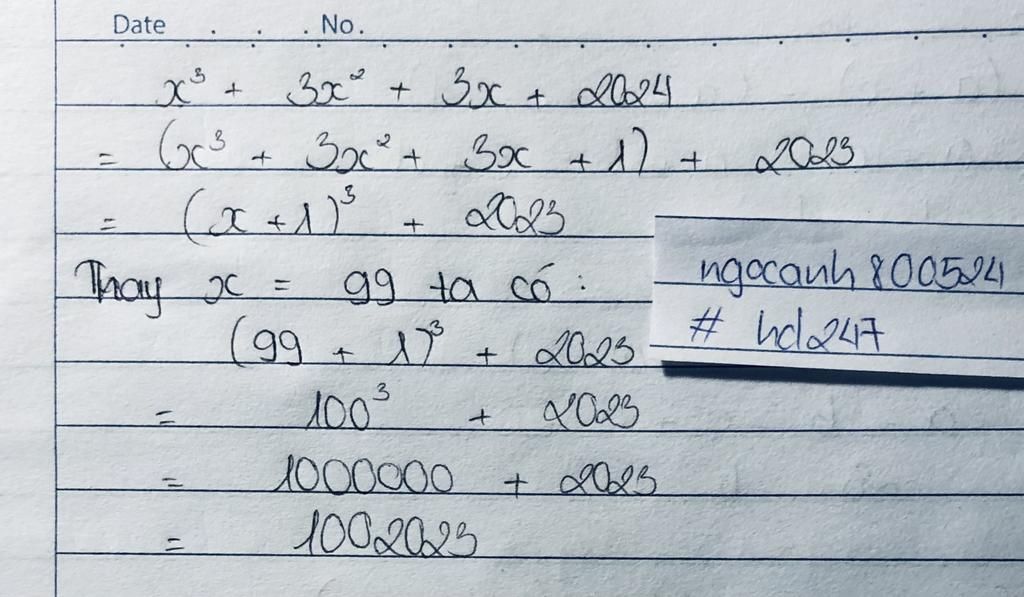 Date . . . . No.
x³ + 3x² + 3x + 2024
= (x³ + 3x² + 3x + 1) + 2023
= (x + 1)³ + 2023
Thay x = 99 ta có :
(99 + 1)³ + 2023
= 100³ + 2023
= 1000000 + 2023
= 1002023
ngocanh 800524
# hd247